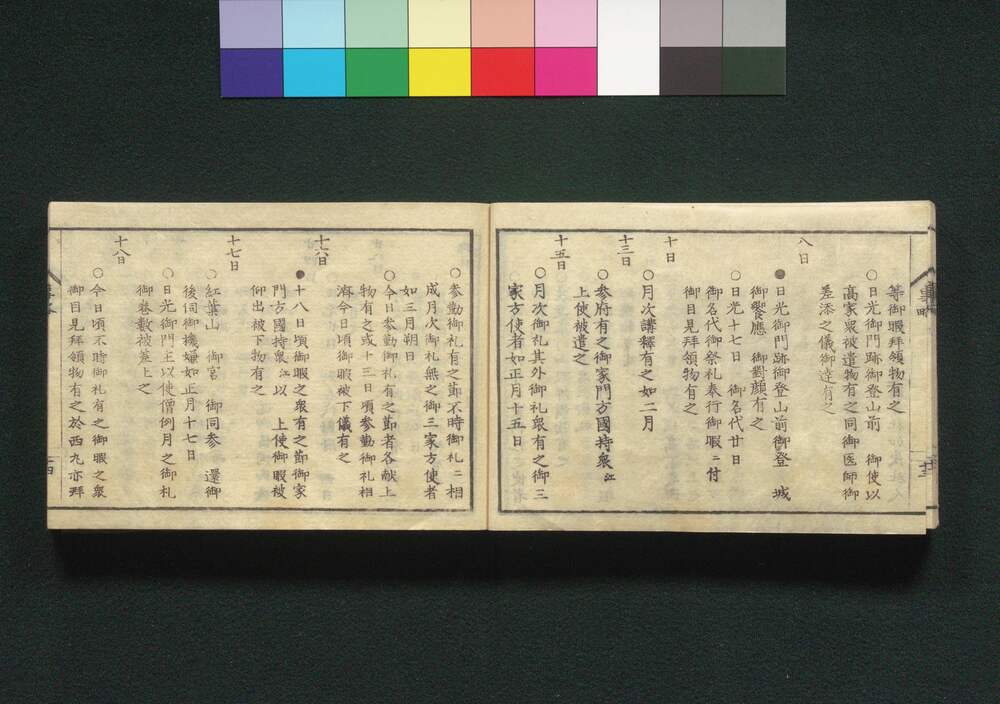 等御暇拝領物有之
八日
○日光御門跡御登山前　御使以
高家衆被遣物有之同御医師御
差添之儀御達有之
●日光御門跡御登山前御登　城
御饗應　御對顔有之
○日光十七日　御名代廿日
御名代御祭礼奉行御暇ニ付
御目見拝領物有之
十日
○月次講釋有之如二月
十三日
○参府有之御家門方國持衆江
上使被遣之
十五日
○月次御礼其外御礼衆有之御三
家方使者如正月十五日
○参勤御礼有之節不時御礼ニ相
成月次御礼無之御三家方使者
如三月朔日
○今日参勤御礼有之節者各献上
物有之或十三日頃参勤御礼相
濟今日頃御暇被下儀有之
十六日
●十八日頃御暇之衆有之節御家
門方國持衆江以　上使御暇被
仰出被下物有之
十七日
○紅葉山　御宮　御同参　還御
後伺御機嫌如正月十七日
○日光御門主以使僧例月之御札
御巻數被差上之
十八日
○今日頃不時御礼有之御暇之衆
御目見拝領物有之於西丸亦拝
十四